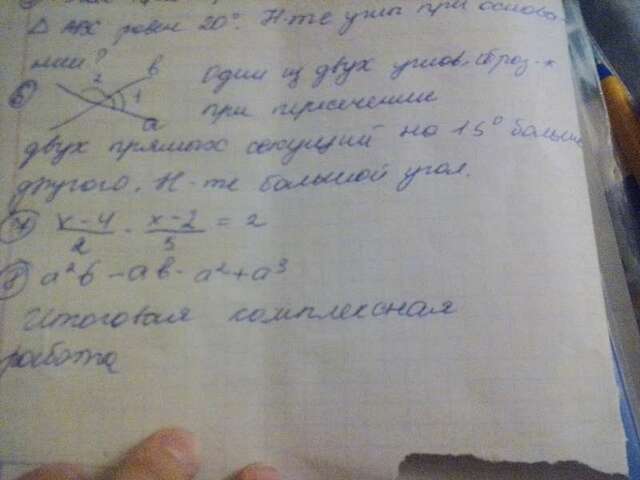 △ АВС равен 20°. Н-те углы при основа-
нии?
6) 2 в 1 а один из двух углов, образ-х
при пересечении
двух прямых секущий на 15° больше
другого. Н-те больший угол.
7) x-4/2 - x-2/3 = 2
8) a²b - ab - a² + a³
Итоговая комплексная
работа